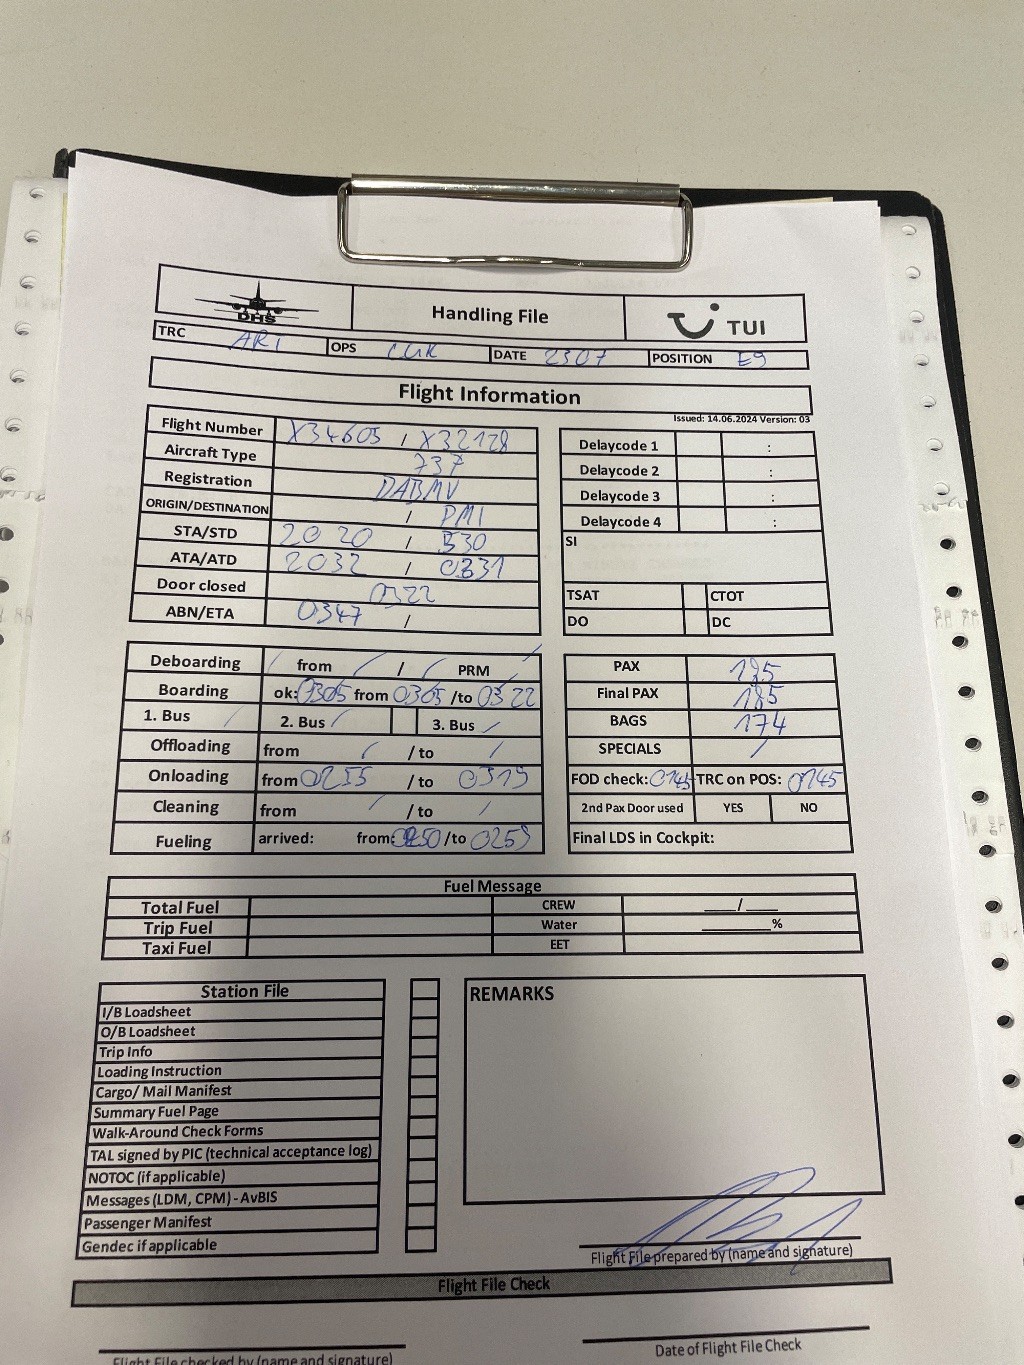 DHS
Handling File
TUI
TRC ART OPS DATE 2307 POSITION E9
Flight Information
Issued: 14.06.2024 Version: 03
Flight Number X34605 / X32178
Aircraft Type 737
Registration DABMV
ORIGIN/DESTINATION / PMI
STA/STD 2020 / 330
ATA/ATD 2032 / 0331
Door closed 0322
ABN/ETA 0347 /
Delaycode 1 :
Delaycode 2 :
Delaycode 3 :
Delaycode 4 :
SI
TSAT CTOT
DO DC
Deboarding from / / / PRM /
Boarding ok: 0305 from 0305 /to 0322
1. Bus / 2. Bus / 3. Bus /
Offloading from / / to /
Onloading from 0255 / to 0319
Cleaning from / / to /
Fueling arrived: from: 0250 /to 0259
PAX 185
Final PAX 185
BAGS 174
SPECIALS /
FOD check: 0145 TRC on POS: 0145
2nd Pax Door used YES NO
Final LDS in Cockpit:
Fuel Message
Total Fuel CREW ___/___
Trip Fuel Water ______%
Taxi Fuel EET
Station File
I/B Loadsheet
O/B Loadsheet
Trip Info
Loading Instruction
Cargo/ Mail Manifest
Summary Fuel Page
Walk-Around Check Forms
TAL signed by PIC (technical acceptance log)
NOTOC (if applicable)
Messages (LDM, CPM) - AvBIS
Passenger Manifest
Gendec if applicable
REMARKS
Flight File prepared by (name and signature)
Flight File Check
Flight File checked by (name and signature)
Date of Flight File Check